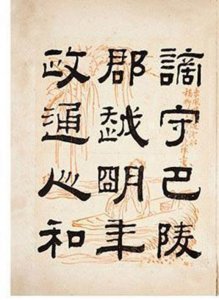 谪守巴陵
郡越明年
政通人和